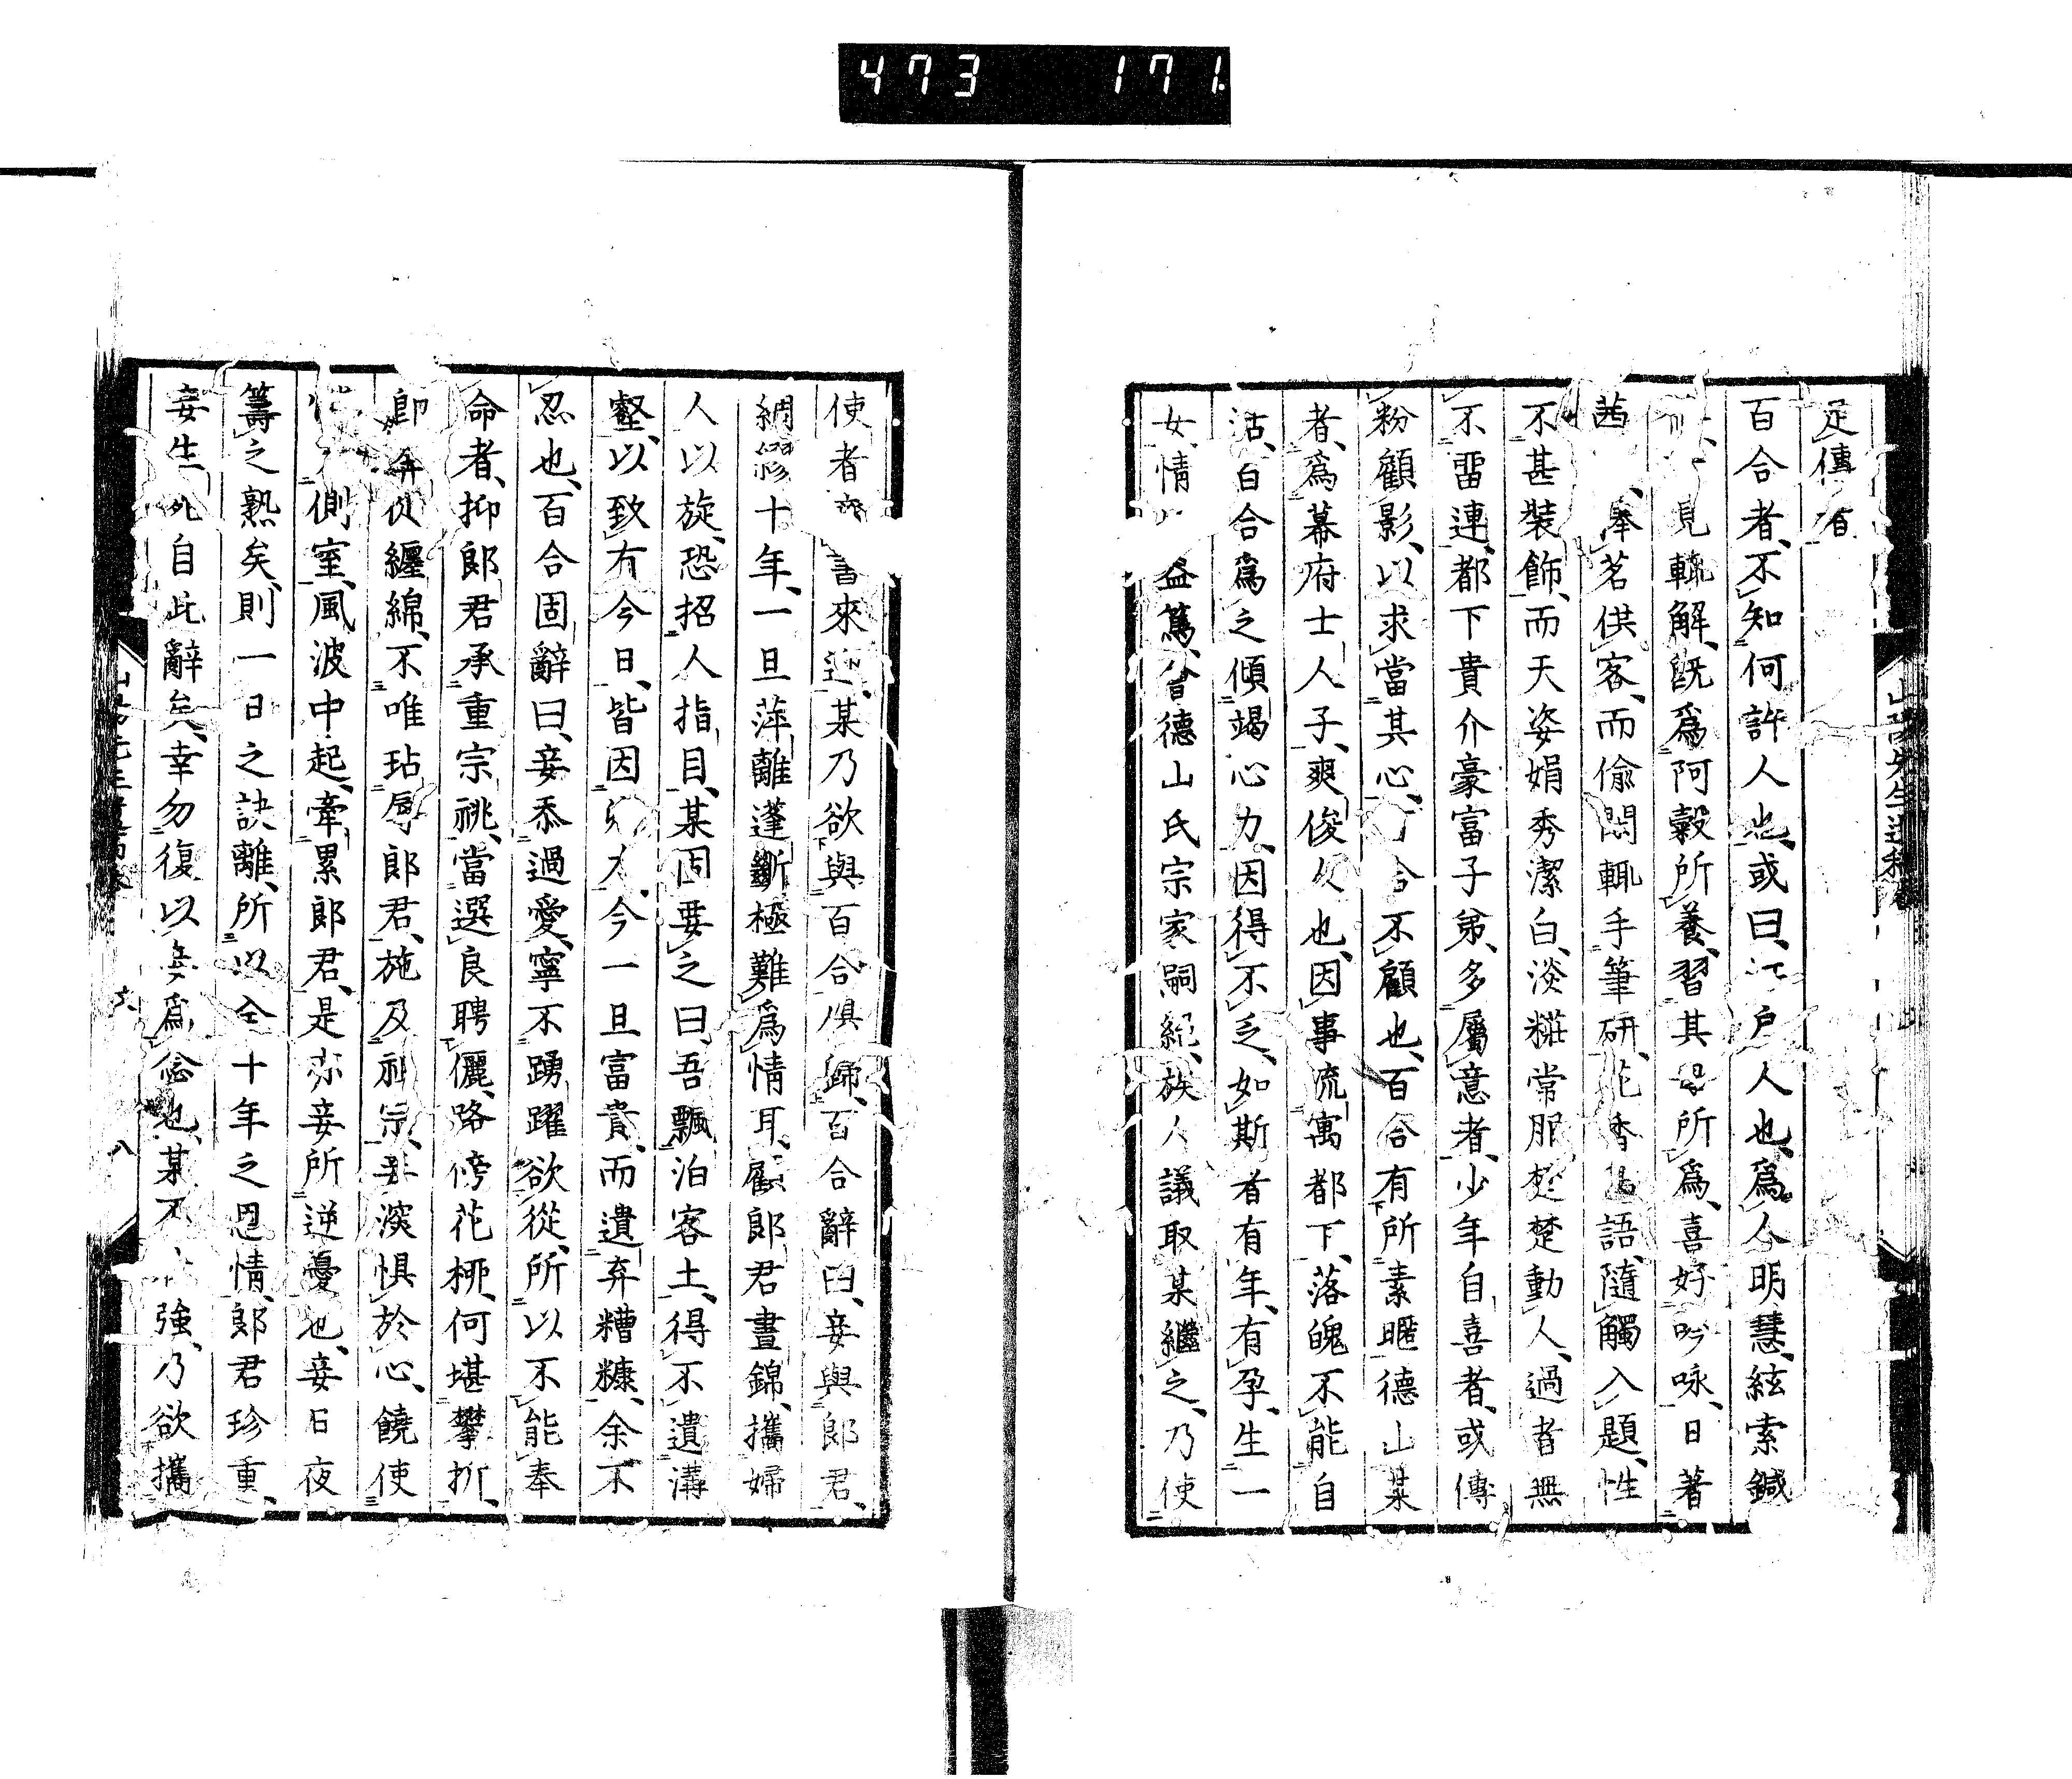 473 171.
足傳者
百合者、不知何許人也、或曰、江戸人也、爲人明慧、絃索鍼
見輒解、既爲阿縠所養、習其母所爲、喜好吟咏、日著
茜 奉茗供客、而偸閑輒手筆研、花香 語、隨觸入題、性
不甚裝飾、而天姿娟秀潔白、淡粧常服楚楚動人、過者無
不畱連、都下貴介豪富子弟、多屬意者、少年自喜者、或傳
粉顧影、以求當其心、百合不顧也、百合有所素暱德山某
者、爲幕府士人子、爽俊人也、因事流寓都下、落魄不能自
活、百合爲之傾竭心力、因得不乏、如斯者有年、有孕、生一
女、情 益篤、會德山氏宗家嗣絕、族人議取某繼之、乃使
使者齎書來迎、某乃欲與百合俱歸、百合辭曰、妾與郎君、
綢繆十年、一旦萍離蓬斷、極難爲情耳、顧郎君晝錦、攜婦
人以旋、恐招人指目、某固要之曰、吾飄泊客土、得不遺溝
壑、以致有今日、皆因 今一旦富貴、而遺弃糟糠、余不
忍也、百合固辭曰、妾忝過愛、寧不踴躍欲從、所以不能奉
命者、抑郎君承重宗祧、當選良聘儷、路傍花柳、何堪攀折、
郎 從纏綿、不唯玷辱郎君、施及祖宗、妾深惧於心、饒使
側室、風波中起、牽累郎君、是亦妾所逆憂也、妾日夜
籌之熟矣、則一日之訣離、所以全十年之恩情、郎君珍重、
妾生死自此辭矣、幸勿復以妾爲念也、某不 強、乃欲攜
山陽先生遺稿
八